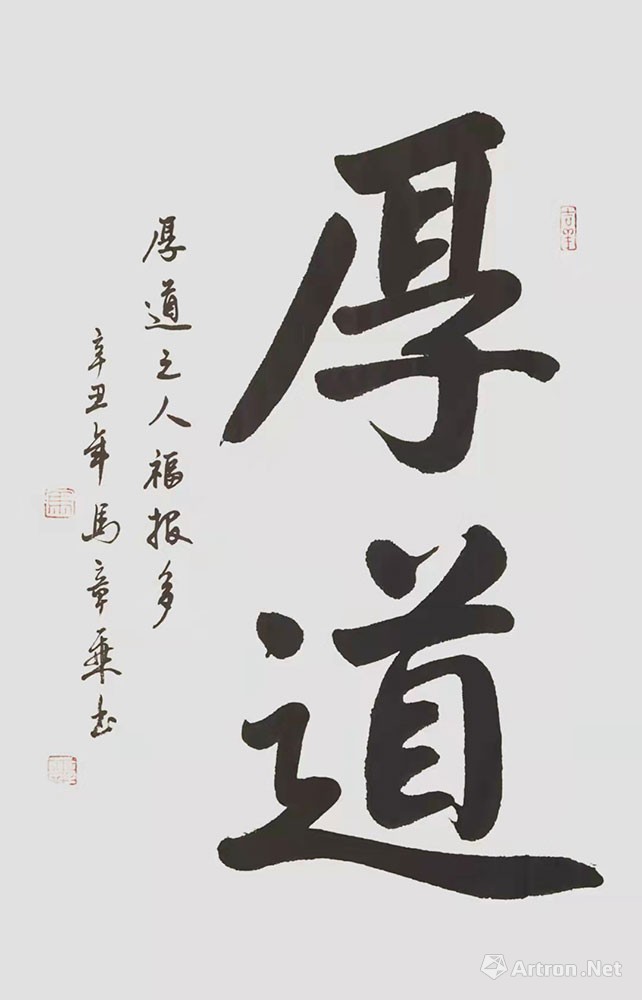 厚道
厚道之人福报多
辛丑年馬章乘书
Artron.Net